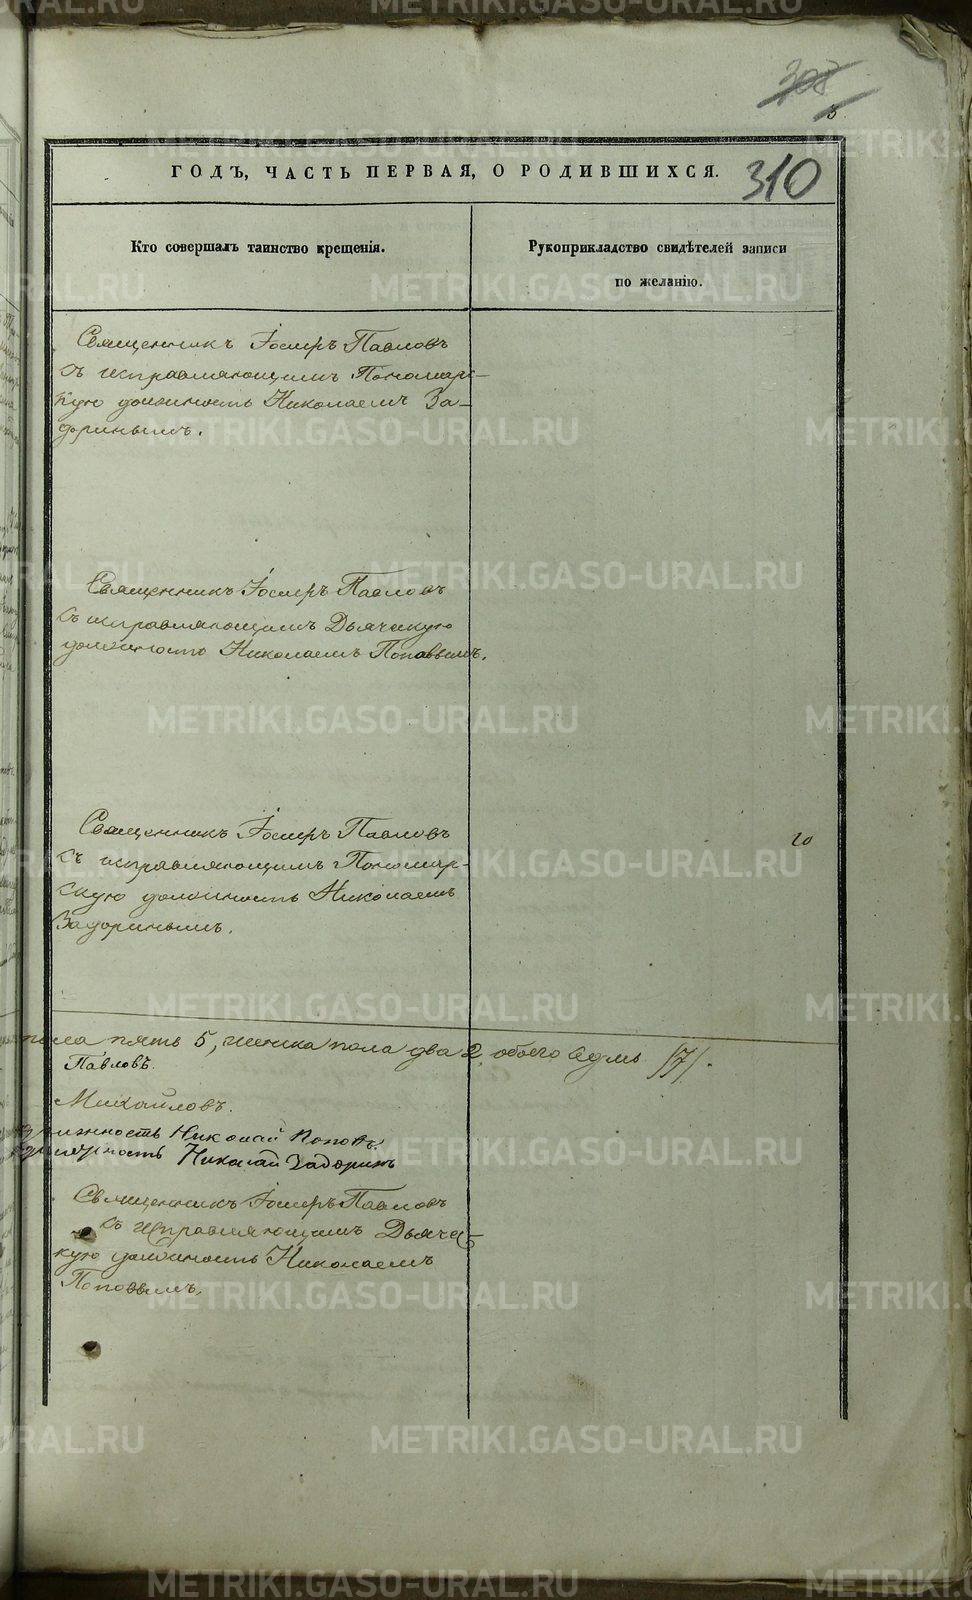 308
5
ГОДЪ, ЧАСТЬ ПЕРВАЯ, О РОДИВШИХСЯ.
310
Кто совершалъ таинство крещенія.
Рукоприкладство свидѣтелей записи
по желанію.
Священникъ Іосифъ Павловъ
съ исправляющимъ Пономар-
скую должность Николаемъ За-
дориным.
Священникъ Іосифъ Павловъ
съ исправляющимъ Дьячскую
должность Николаемъ Поповымъ.
Священникъ Іосифъ Павловъ
съ исправляющимъ Пономар-
скую должность Николаемъ
Задоринымъ.
20
пола пять 5, женска пола два 2, обоего седмь /7/.
Павловъ.
Михайловъ.
должность Николай Поповъ.
должность Николай Задоринъ
Священникъ Іосифъ Павловъ
съ исправляющимъ Дьячс-
кую должность Николаемъ
Поповымъ.
METRIKI.GASO-URAL.RU